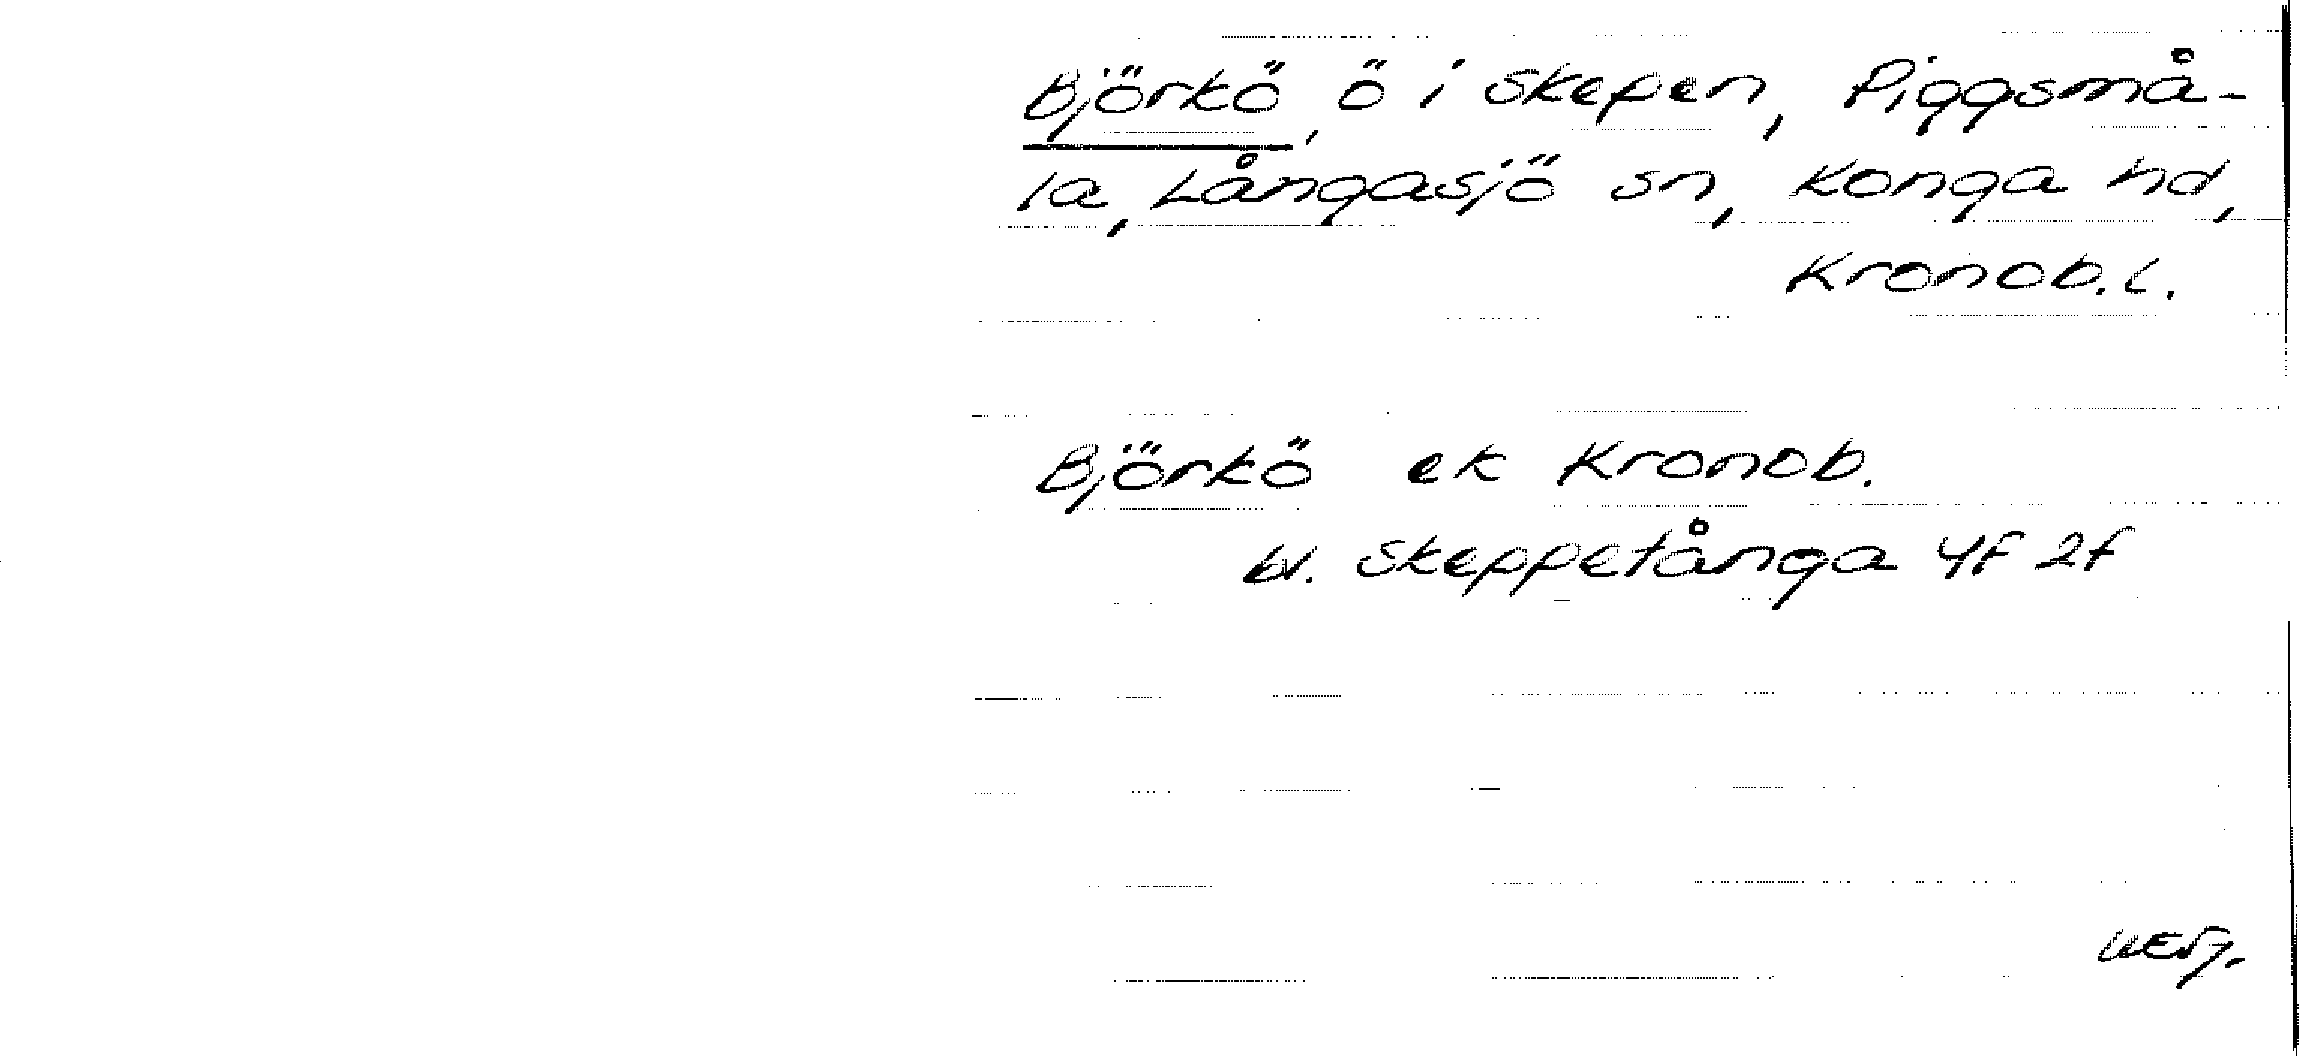 Björkö, ö i Skepen, Piggsmå-
la, Långasjö sn, Konga hd,
Kronob. L.
Björkö ek Kronob.
bl. Skeppetånga 4F 2f